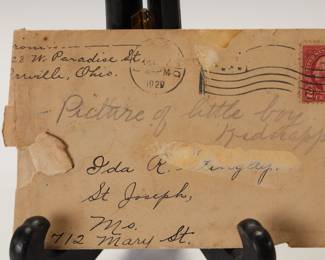 From
W. Paradise St.
rville, Ohio.
1929
Picture of little boy
Kidnapp
Ida R.
St Joseph,
Mo.
712 Mary St.